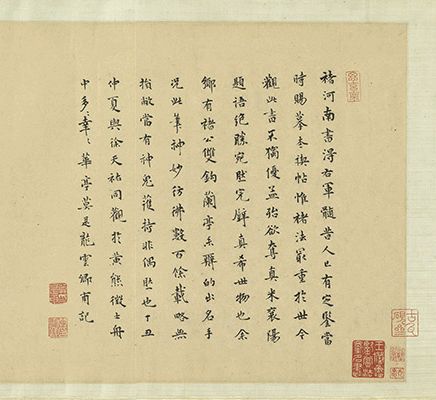 褚河南書得右軍髓昔人已有定鑒當
時賜摹本禊帖惟褚法最重於世今
觀此書不獨優孟殆欲奪真米襄陽
題語絕勝宛然完 真希世物也余
鄉有諸公雙鈎蘭亭 的出名手
況此筆神妙彷彿數百餘載略無
損敝當有神鬼護持非偶然也丁丑
仲夏與徐天祐同觀於黃熊徵士舟
中多幸〻華亭莫是龍雲卿甫記